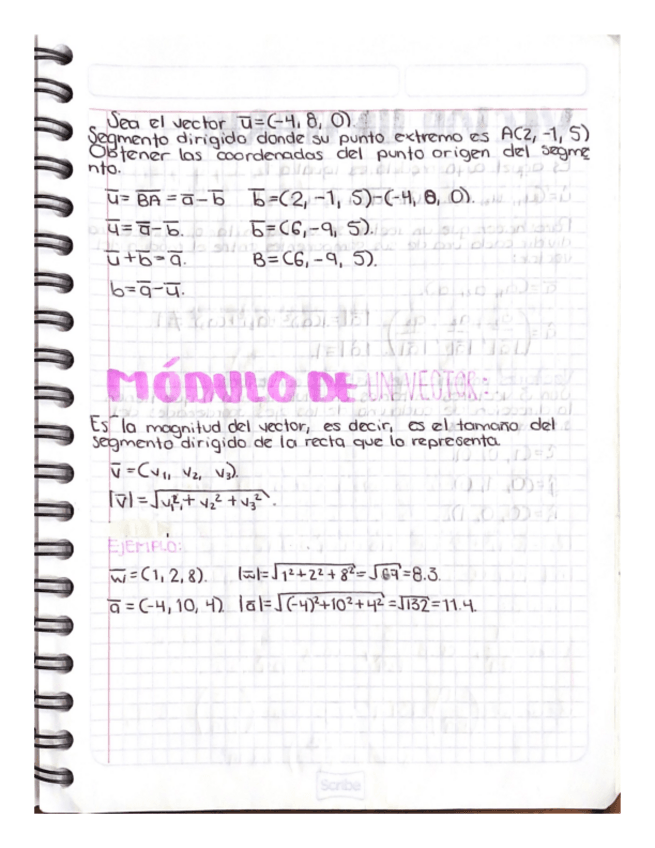 Sea el vector u̅=(-4, 8, 0).
Segmento dirigido donde su punto extremo es A(2, -1, 5)
Obtener las coordenadas del punto origen del segme
nto.
u̅ = B̅A̅ = a̅ - b̅ b̅=(2, -1, 5)-(-4, 8, 0).
u̅ = a̅ - b̅. b̅=(6, -9, 5).
u̅ + b̅ = a̅. B=(6, -9, 5).
b = a̅ - u̅.
MÓDULO DE UN VECTOR:
Es la magnitud del vector, es decir, es el tamaño del
segmento dirigido de la recta que lo representa.
v̅ = (v₁, v₂, v₃).
|v̅| = √v₁² + v₂² + v₃².
EJEMPLO:
w̅ = (1, 2, 8). |w̅|=√1²+2²+8²=√69=8.3.
a̅ = (-4, 10, 4) |a̅|=√(-4)²+10²+4²=√132=11.4.
Scribe